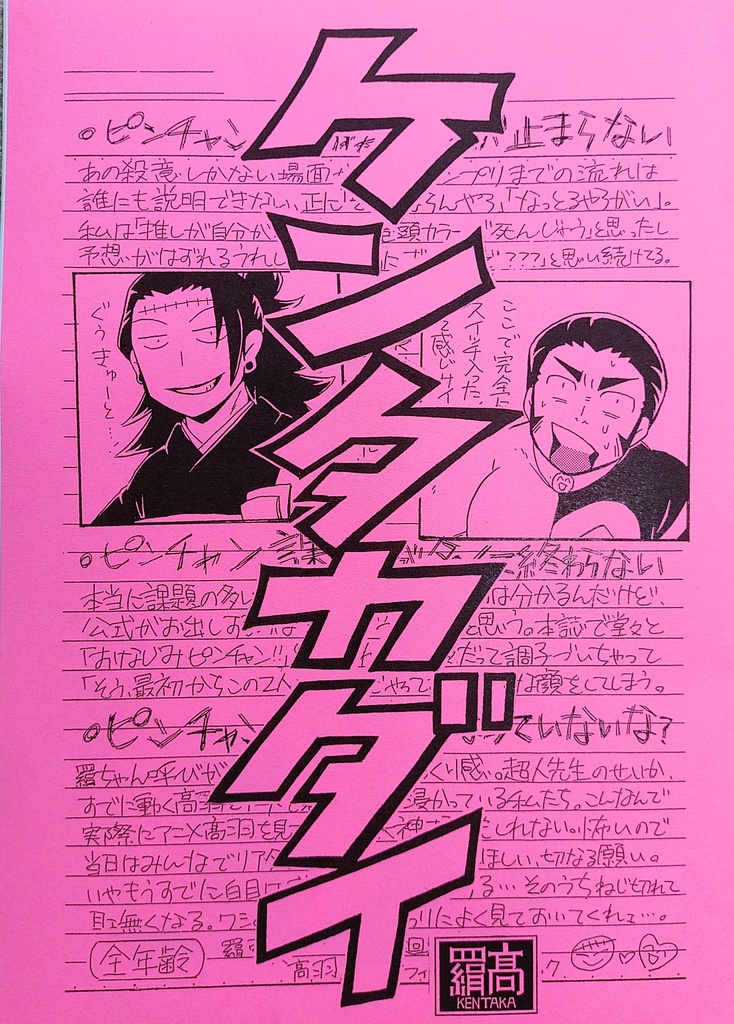 ケンタカダイ
。ピンチャン
が止まらない
あの殺意しかない場面
ンプリまでの流れは
誰にも説明できない、正に「
らんやろ」「なっとるやろがい」。
私は「推しが自分が
巻頭カラー
死んじゃう」と思ったし
予想がはずれるうれし
???」と思い続けてる。
ぐぅきゅーと…
ここで完全に
スイッチ入った
。ピンチャン
終わらない
本当に課題の多い
は分かるんだけど、
公式がお出しお
と思う。本誌で堂々と
「おけなじみピンチャン!!」
だって調子づいちゃって
「そう、最初からこの2人
な顔をしてしまう。
。ピンチャン
っていないな?
羂ちゃん呼びが
くり感。超人先生のせいか、
すでに動く高羽
浸かっている私たち。こんなんで
実際にアニメ高羽を見
しれない。怖いので
当日はみんなでリアタ
ほしい、切なる願い。
いやもうすでに白目
る…そのうちねじ切れて
耳無くなる。ワシ
りによく見ておいてくれ…。
全年齢
羂
高羽
回
ク
羂髙
KENTAKA